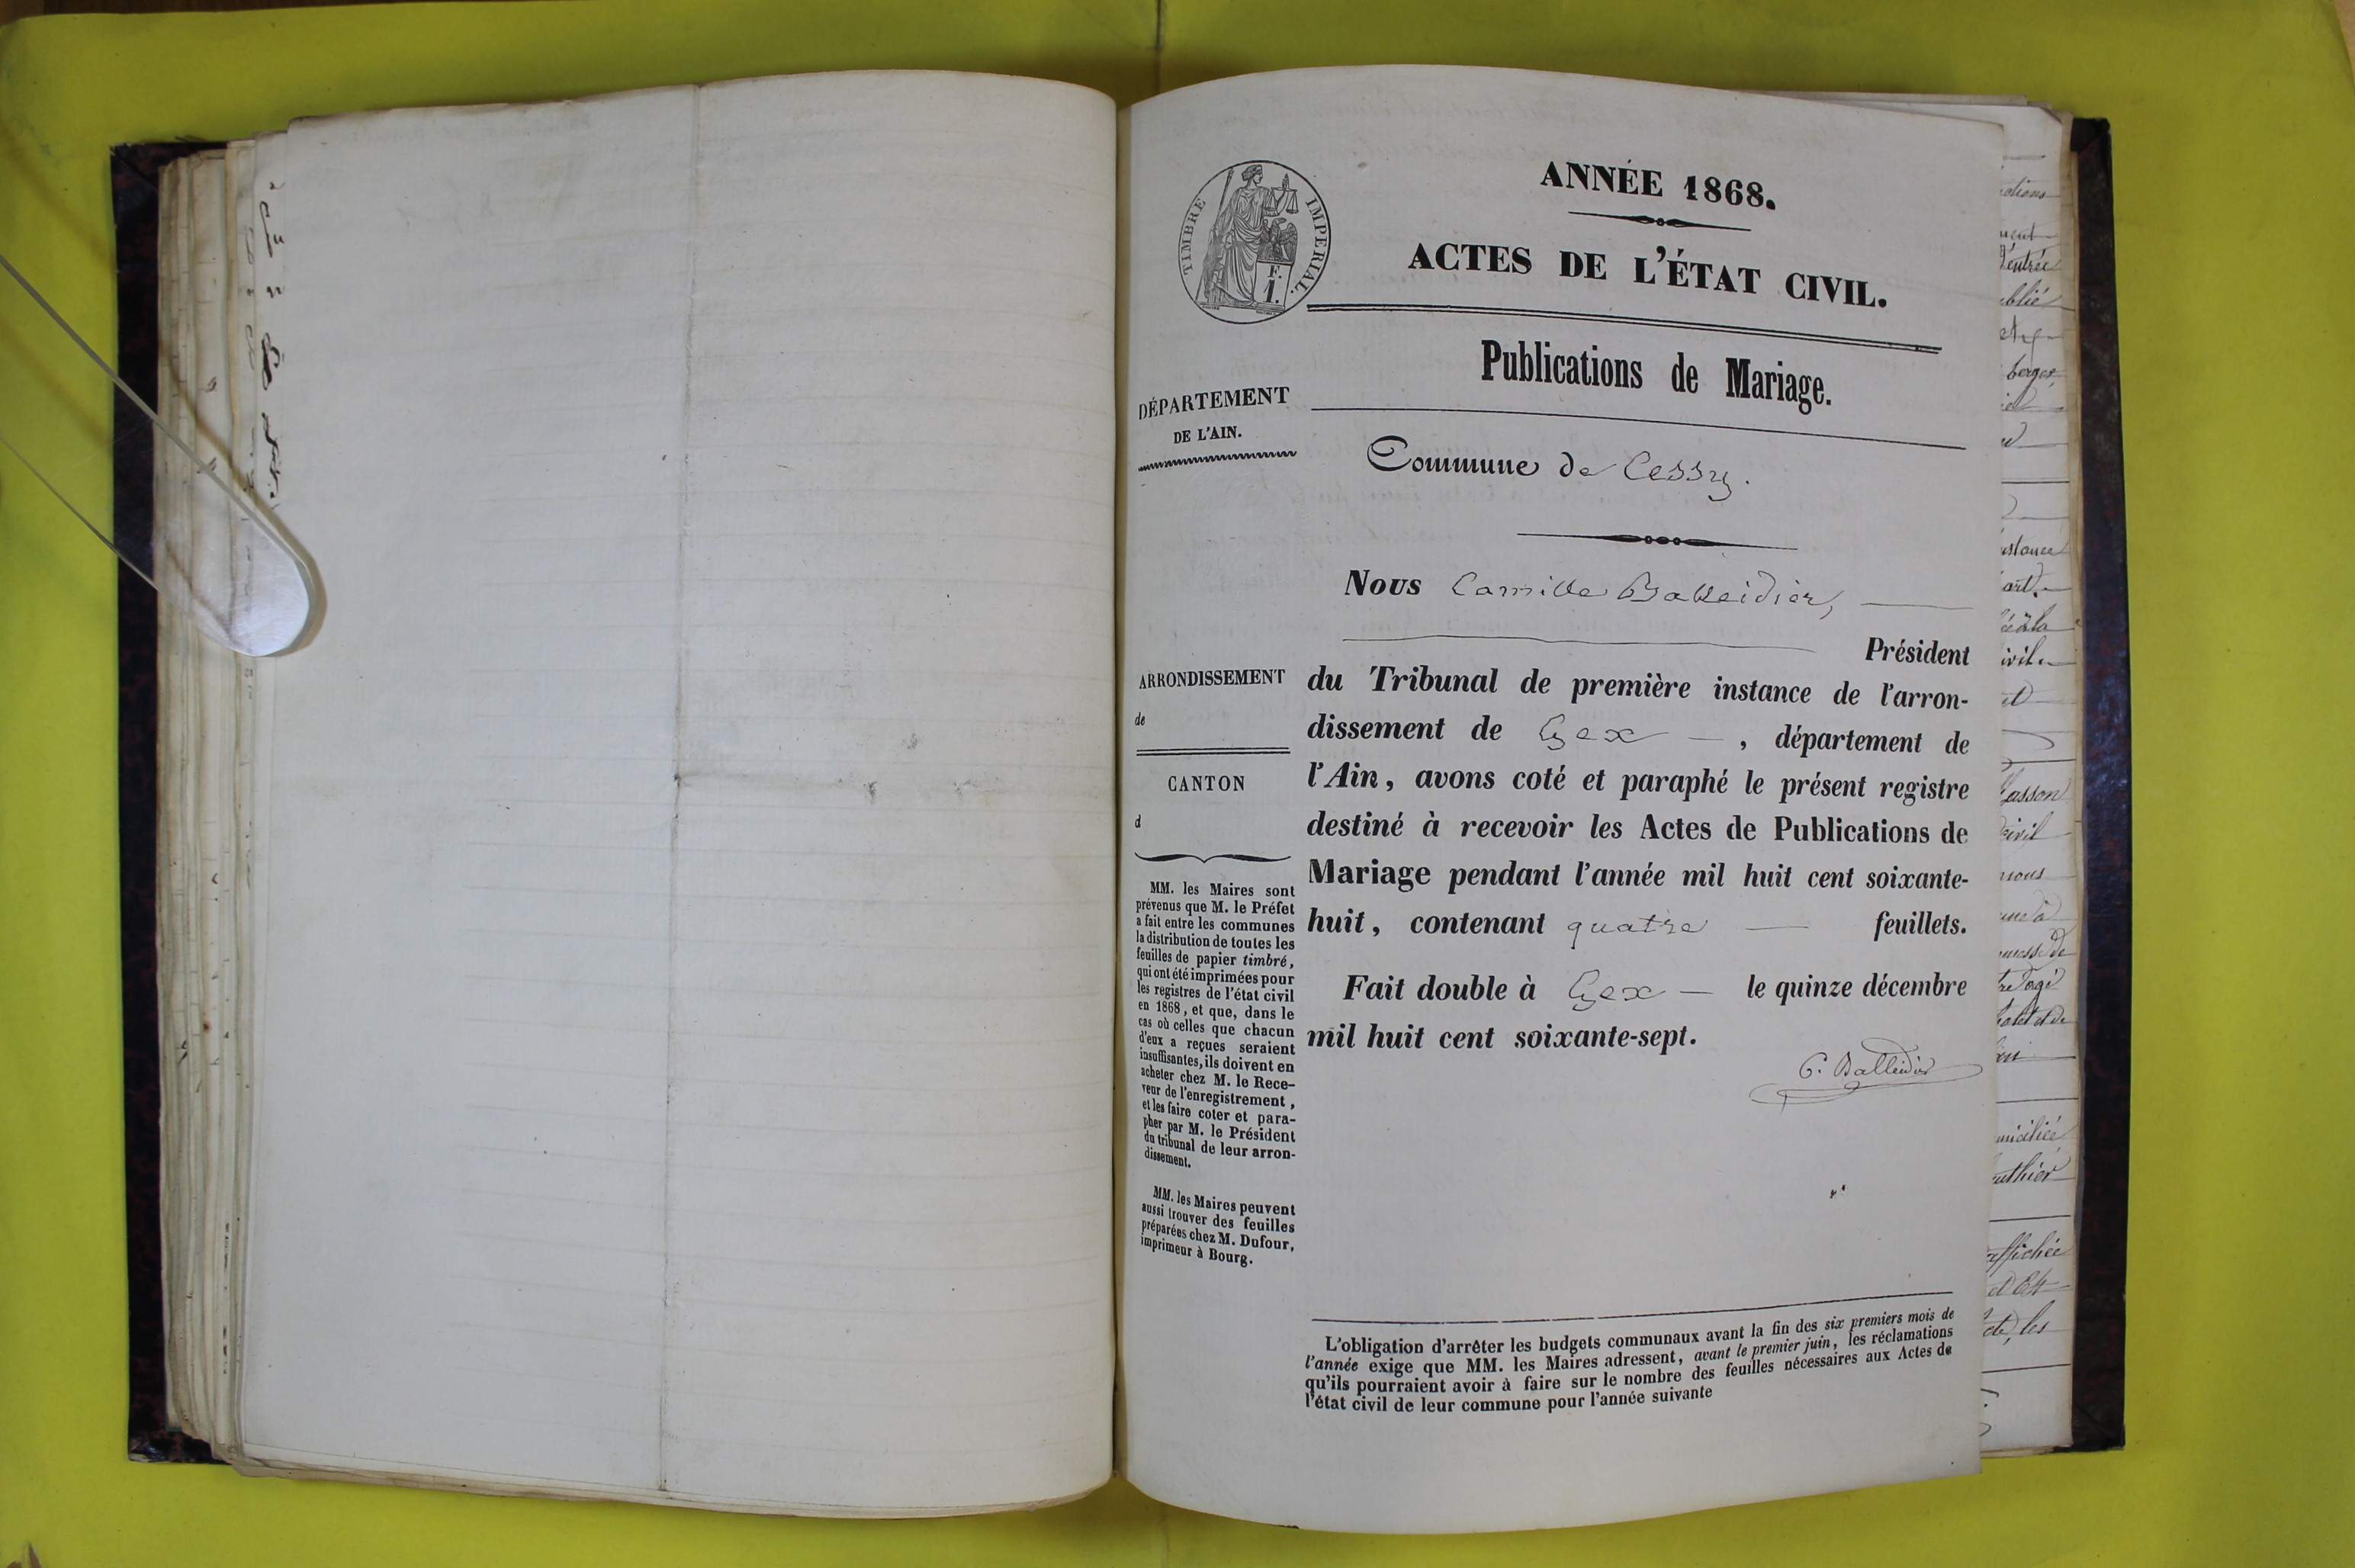 TIMBRE IMPERIAL.
F.
1.
ANNÉE 1868.
ACTES DE L'ÉTAT CIVIL.
Publications de Mariage.
DÉPARTEMENT
DE L'AIN.
Commune de Cessy.
Nous Camille Balleidier,
Président
du Tribunal de première instance de l'arron-
dissement de Gex — , département de
l'Ain, avons coté et paraphé le présent registre
destiné à recevoir les Actes de Publications de
Mariage pendant l'année mil huit cent soixante-
huit, contenant quatre — feuillets.
Fait double à Gex — le quinze décembre
mil huit cent soixante-sept.
C. Balleidier
ARRONDISSEMENT
de
CANTON
d
MM. les Maires sont
prévenus que M. le Préfet
a fait entre les communes
la distribution de toutes les
feuilles de papier timbré,
qui ont été imprimées pour
les registres de l'état civil
en 1868, et que, dans le
cas où celles que chacun
d'eux a reçues seraient
insuffisantes, ils doivent en
acheter chez M. le Rece-
veur de l'enregistrement,
et les faire coter et para-
pher par M. le Président
du tribunal de leur arron-
dissement.
MM. les Maires peuvent
aussi trouver des feuilles
préparées chez M. Dufour,
imprimeur à Bourg.
L'obligation d'arrêter les budgets communaux avant la fin des six premiers mois de
l'année exige que MM. les Maires adressent, avant le premier juin, les réclamations
qu'ils pourraient avoir à faire sur le nombre des feuilles nécessaires aux Actes de
l'état civil de leur commune pour l'année suivante